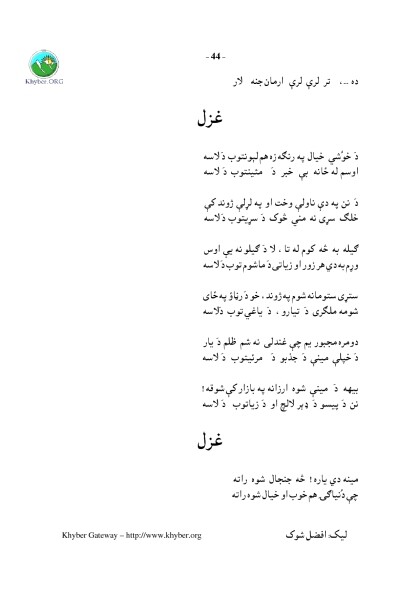 - 44 -
Khyber.ORG
ده ... ، تر لري لري ارمان جنه لار
غزل
دَ خوُشي خيال په رنګه زه هم لېونتوب دَ لاسه
اوسم له ځانه بې خبر دَ مئينتوب دَ لاسه
دَ نن په دې ناولې وخت او په لړلې ژوند کې
خلګ سړی نه مني څوک دَ سړيتوب دَ لاسه
ګيله به څه کوم له تا ، لا دَ ګيلو نه يې اوس
وړم به دې هر زور او زياتی دَ ماشوم توب دَ لاسه
ستړی ستومانه شوم په ژوند ، خو دَ رڼاؤ په ځای
شومه ملګری دَ تيارو ، دَ ياغي توب دَ لاسه
دومره مجبور يم چې غندلی نه شم ظلم دَ يار
دَ خپلې مينې دَ جذبو دَ مرئيتوب دَ لاسه
بيهه دَ مينې شوه ارزانه په بازار کې شوقه !
نن دَ پيسو دَ ډېر لالچ او دَ زياتوب دَ لاسه
غزل
مينه دې ياره ! څه جنجال شوه راته
چې دُنياګۍ هم خوب او خيال شوه راته
ليک: افضل شوک
Khyber Gateway – http://www.khyber.org